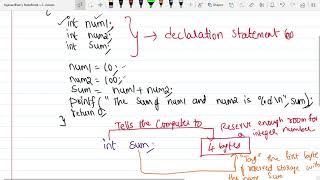 int num1;
int num2;
int sum;
→ declaration statement
num1 = 10;
num2 = 100;
sum = num1 + num2;
printf(" The sum of num1 and num2 is %d \n", sum);
return 0;
}
Tells the Computer to
Reserve enough room for
a integer number
int sum;
4 bytes
"Tag" the first byte
of reserved storage with
the name sum